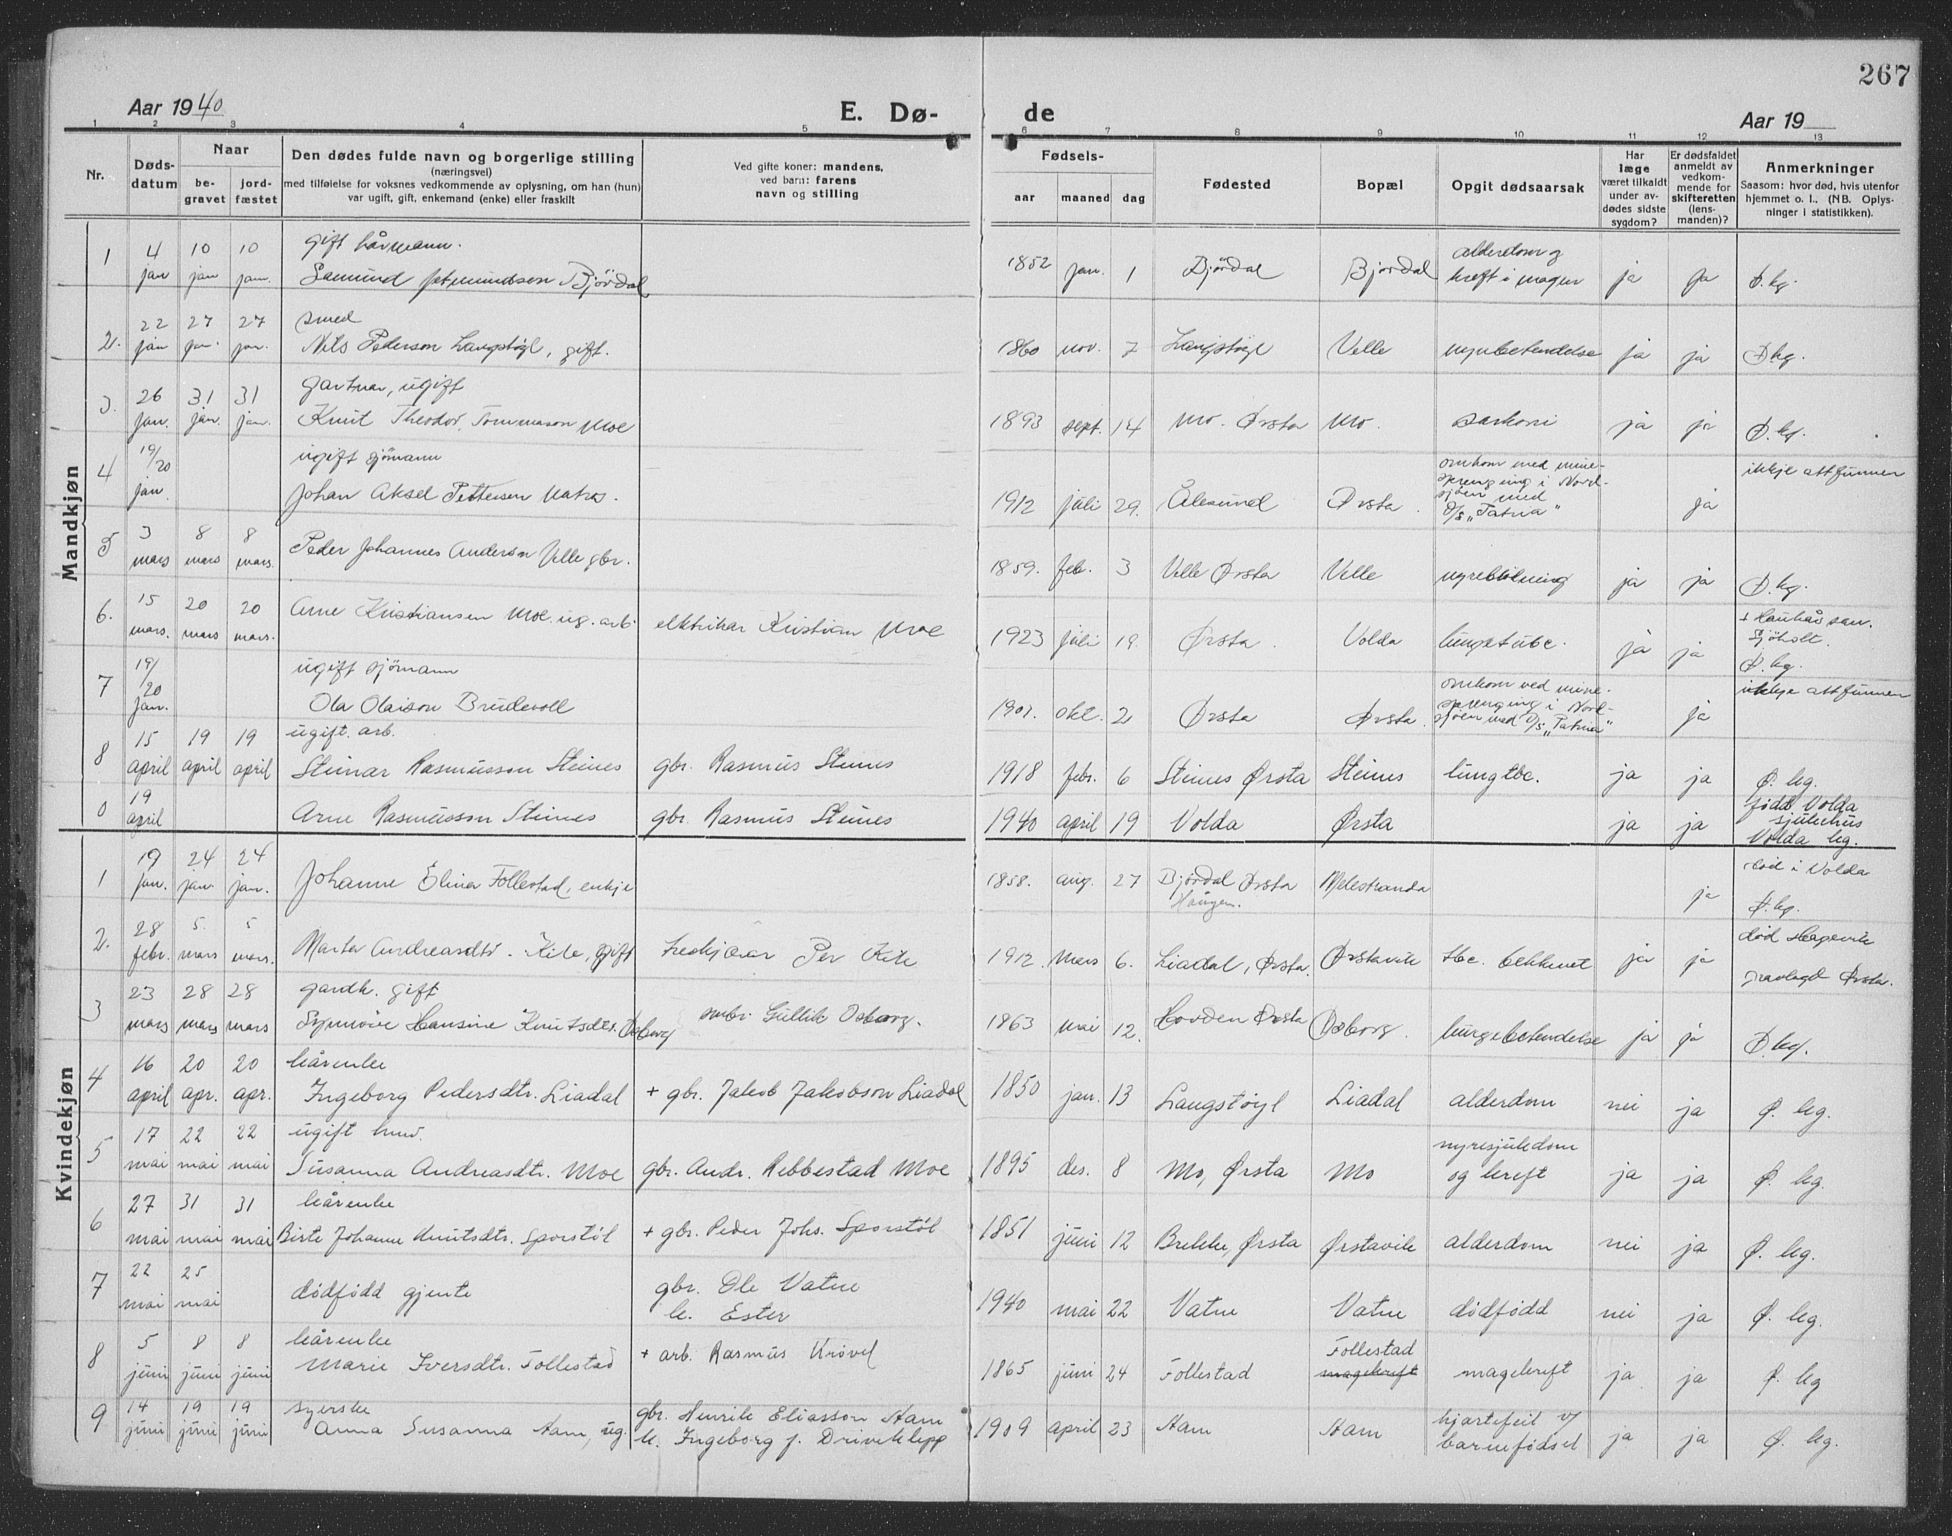 267
Aar 1940
E. Dø-
de
Aar 19
1 2 3 4 5 6 7 8 9 10 11 12 13
Nr.
Døds-
datum
Naar
be-
gravet
jord-
fæstet
Den dødes fulde navn og borgerlige stilling
(næringsvei)
med tilføielse for voksnes vedkommende av oplysning, om han (hun)
var ugift, gift, enkemand (enke) eller fraskilt
Ved gifte koner: mandens,
ved barn: farens
navn og stilling
Fødsels-
aar maaned dag
Fødested
Bopæl
Opgit dødsaarsak
Har
læge
været tilkaldt
under av-
dødes sidste
sygdom?
Er dødsfaldet
anmeldt av
vedkom-
mende for
skifteretten
(lens-
manden)?
Anmerkninger
Saasom: hvor død, hvis utenfor
hjemmet o. l., (NB. Oplys-
ninger i statistikken).
Mandkjøn
1 4 jan 10 jan 10 jan. gift kårmann. Bjørdal 1852 jan. 1 Bjørdal Bjørdal alderdom og kreft i magen ja ja Ø. kg.
2. 22 jan 27 jan. 27 jan. smed Nils Pederson Langstøyl, gift. 1860 nov. 7 Langstøyl Velle nyrebetendelse ja ja Ø kg.
3. 26 jan. 31 jan. 31 jan. gartnar, ugift Knut Theodor Tommason Moe 1893 sept. 14 Mo. Ørsta Mo. sarkom ja ja Ø. kg.
4 19/20 jan. ugift sjømann Johan Aksel Pettersen Matros. 1912 juli 29. Ålesund Ørsta omkom med mine-
sprenging i Nord-
sjøen med
D/s „Patria“ ja ikkje attfunnen
5 3 mars 8 mars 8 mars. Peder Johannes Anderson Velle gbr. 1859. feb. 3 Velle Ørsta Velle nyreblødning ja ja Ø. kg.
6. 15 mars. 20 mars 20 mars. Arne Kristiansen Moe. ug. arb. elektrikar Kristian Moe 1923 juli 19. Ørsta. Volda lungetube. ja ja + Haukås san.
Sjøholt.
Ø. kg.
7 19/20 jan. ugift sjømann Ola Olaison Brudevoll 1901. okt. 2 Ørsta Ørsta omkom ved mine-
sprenging i Nord-
sjøen med D/s „Patria“ ja ikkje attfunnen
8 15 april 19 april 19 april ugift. arb. Steinar Rasmusson Steines gbr. Rasmus Steines 1918 febr. 6 Steines Ørsta Steines lungtbc. ja ja Ø. kg.
0 19 april Arne Rasmusson Steines gbr. Rasmus Steines 1940 april 19 Volda Ørsta ja ja fødd Volda
sjukehus
Volda kg.
Kvindekjøn
1 19 jan. 24 jan. 24 jan. Johanne Elina Follestad, enkje 1858. aug. 27 Bjørdal Ørsta
Haugen. Melestranda ja død i Volda
Ø. kg.
2. 28 febr. 5. mars 5 mars. Marta Andreasdtr. Kile, gift Per Kile 1912. mars 6. Liadal, Ørsta. Ørstavik tbc. bekkenet ja ja død Hagevik
gravlagd Ørsta.
3 23 mars 28 mars 28 mars gardk. gift Synnøve Hansine Knutsdtr. Osborg Gullik Osborg. 1863 mai 12. Hovden Ørsta Osborg. lungebetendelse ja ja Ø. kg.
4 16 april 20 apr. 20 apr. kårenke Ingeborg Pedersdtr. Liadal + gbr. Jakob Jakobson Liadal 1850 jan. 13 Langstøyl Liadal alderdom nei ja Ø. kg.
5 17 mai 22 mai 22 mai ugift Susanna Andreasdtr. Moe gbr. Andr. Rebbestad Moe 1895 des. 8 Mo, Ørsta Mo nyresjukdom
og kreft ja ja Ø. kg.
6 27 mai 31 mai 31 mai kårenke Birte Johanne Knutsdtr. Sporstøl + gbr. Peder Johs. Sporstøl 1851 juni 12 Brekke, Ørsta Ørstavik alderdom nei ja Ø. kg.
7 22 mai 25 mai dødfødd gjente gbr. Ole Vatne
k. Ester 1940 mai 22 Vatne Vatne dødfødd nei ja Ø. kg.
8 5 juni 8 juni 8 juni kårenke Marie Iversdtr. Follestad + arb. Rasmus Krøvel 1865 juni 24 Follestad Follestad
magekreft magekreft ja ja Ø. kg
9 14 juni 19 juni 19 juni syerske Anna Susanna Aam, ug. gbr. Henrik Eliasson Aam
k. Ingeborg f. Driveklepp 1909 april 23 Aam Aam hjartefeil v/
barnefødsel ja ja Ø. kg.